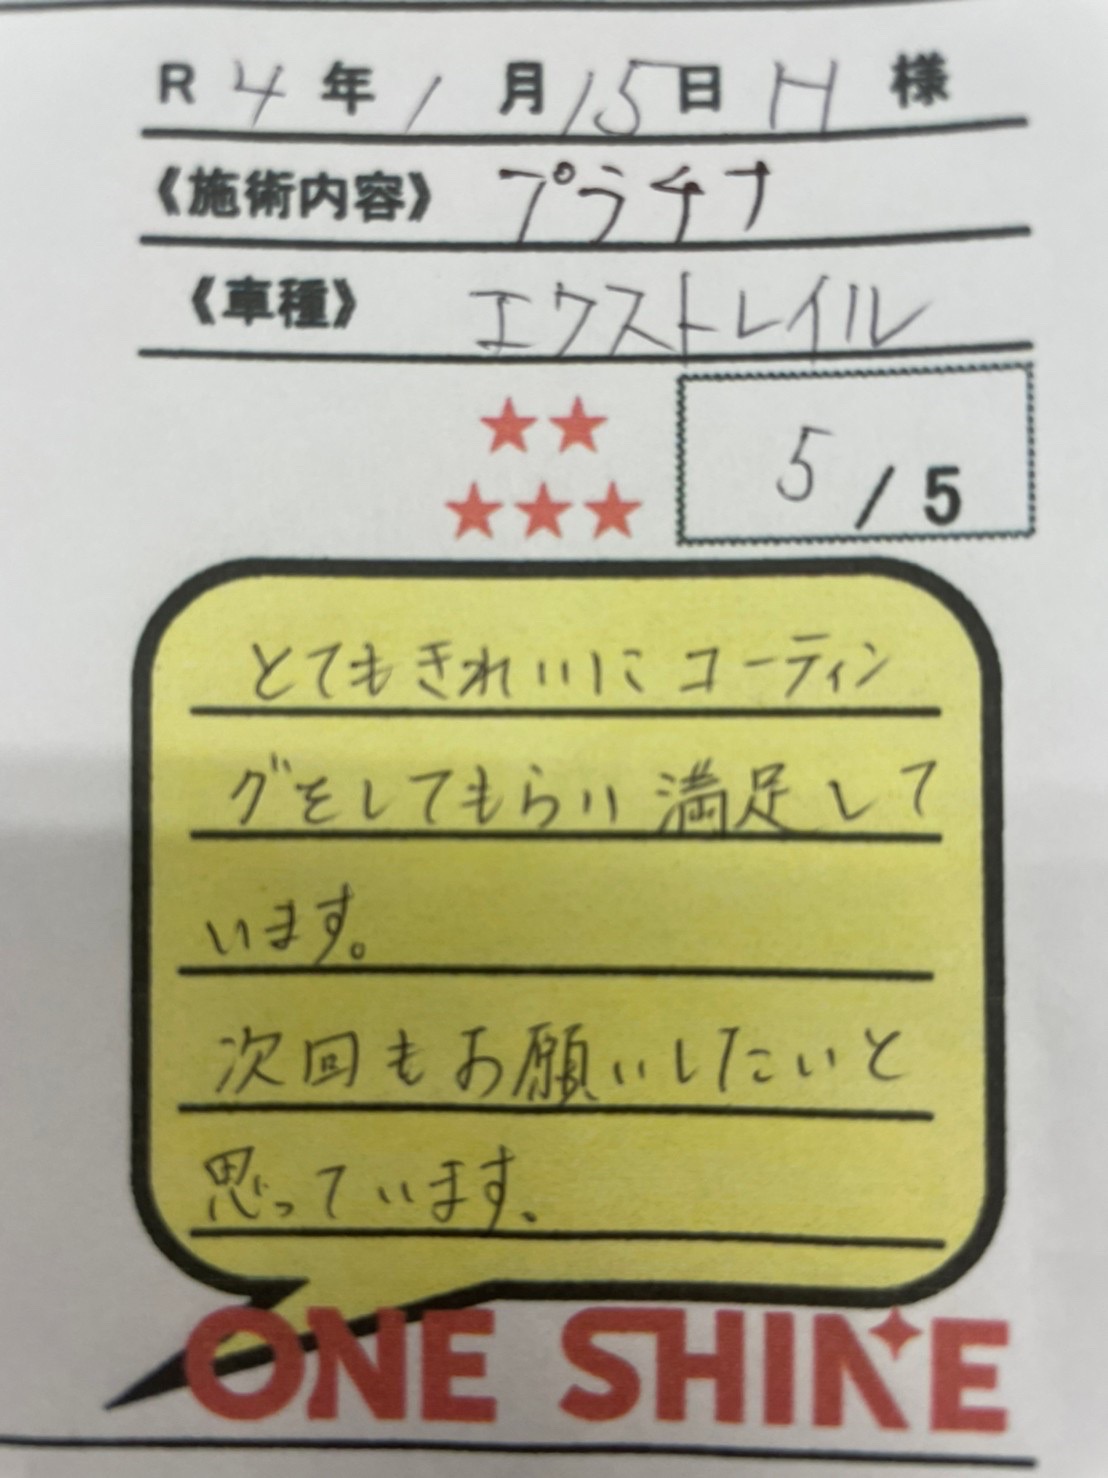 R 4 年 1 月 15 日 H 様
《施術内容》 プラチナ
《車種》 エクストレイル
5 / 5
とてもきれいに コーティン
グをしてもらい 満足して
います。
次回もお願いしたいと
思っています、
ONE SHINE